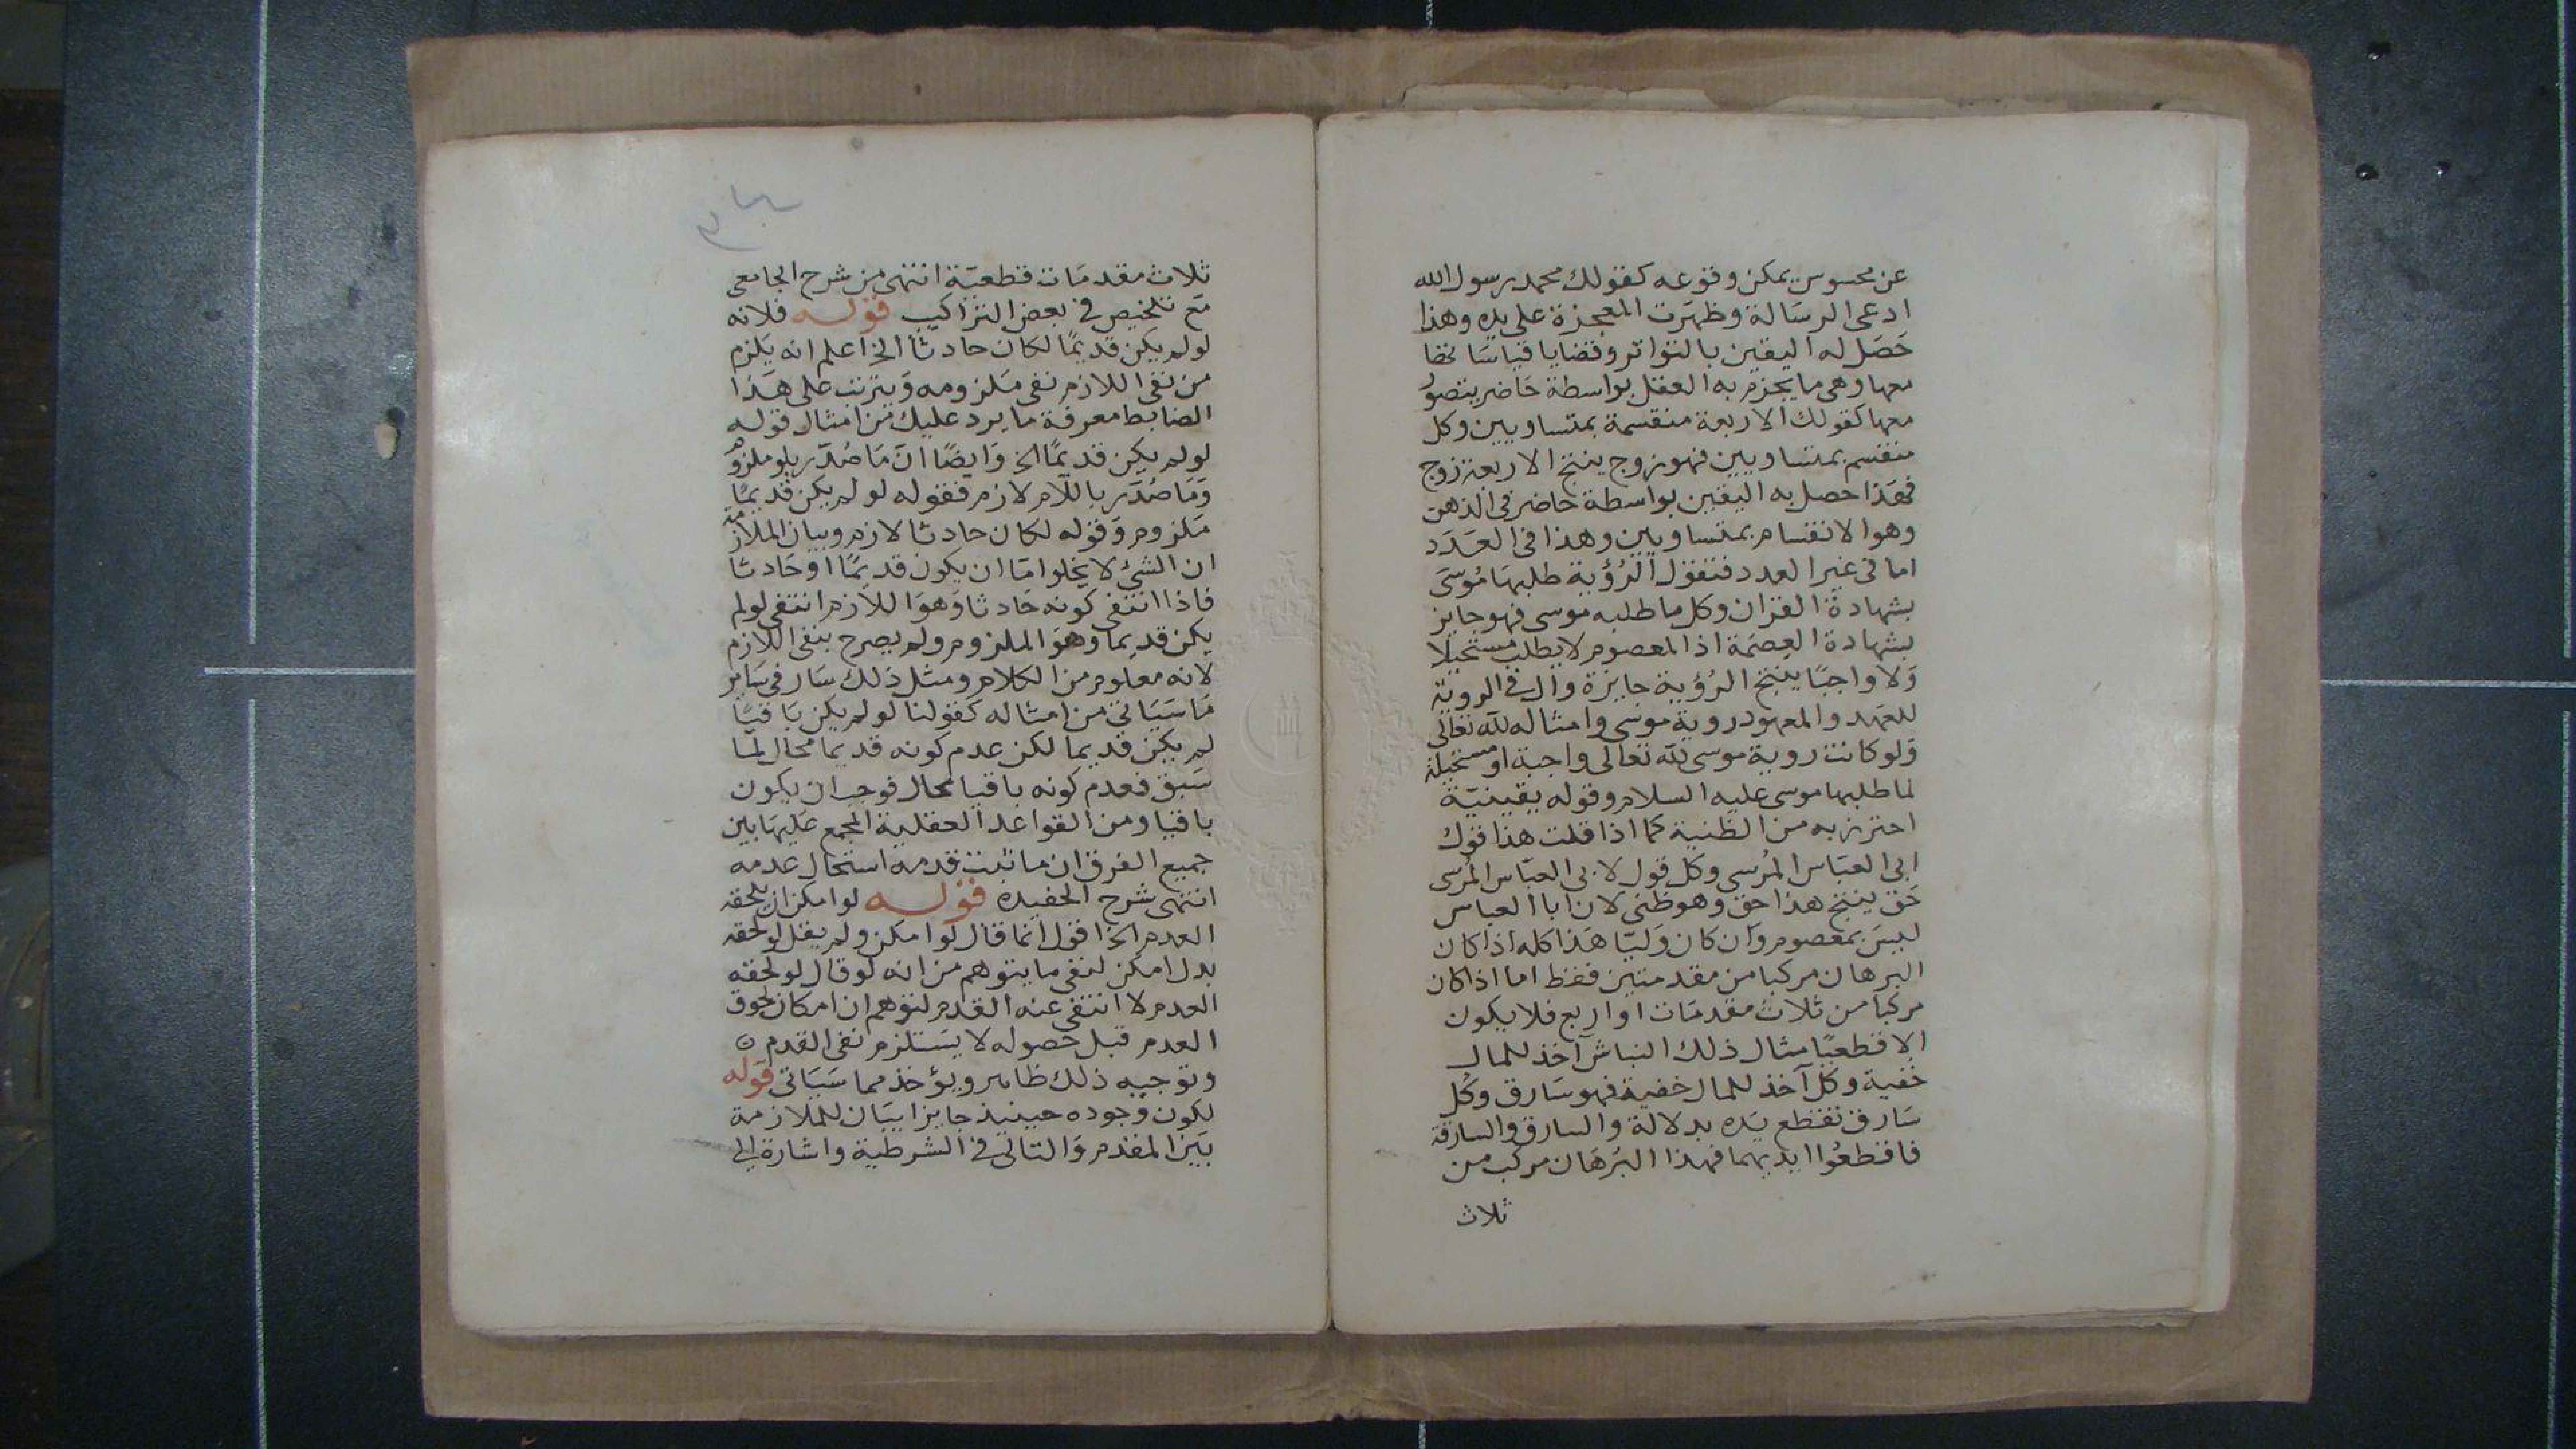 عن محسوس يمكن وقوعه كقولك محمد رسول الله
ادعى الرسَالة وظهَرت المعجزة على يده وهذا
حَصَل له اليقين بالتواتر وقضايا قياسَاتها
معها وهى ما يجزم به العقل بواسطة حَاضر بتصور
معها كقولك الاربعة منقسمة بمتساويين وكل
منقسم بمتساويين فهو زوج ينتج الاربعة زوج
فهَذا حصل به اليقين بواسطة حاضر فى الذهن
وهو الانقسام بمتساويين وهذا فى العَدَد
اما فى غير العدد فتقول الرُؤية طلبهَا مُوسَى
بشهادة القران وكل ما طلبه موسى فهو جايز
بشهادة العِصَمة اذ المعصوم لا يطلب مستحيلا
وَلا واجبًا ينتج الرُؤية جايزة وال فى الروية
للعَهد والمعهود روية موسى وامثاله لله تعالى
وَلو كانت روية موسى لله تعالى واجبة او مستحيلة
لما طلبها موسى عليه السلام وقوله يقينيّة
احترز به من الظنية كما اذا قلت هذا قول
ابى العبَاس المُرسى وكل قول لابى العبّاس المُرسى
حَق ينتج هذا حق وهو ظنى لان ابا العباس
ليسَ بمعصوم وَان كان وَليّا هَذا كله اذا كان
البرهان مركبا من مقدمتين فقط اما اذا كان
مركبا من ثلاث مقدمَات او اربع فلا يكون
الا قطعيًا مثال ذلك النباش آخذ للمال
خفية وكل آخذ للمال خفية فهو سَارق وكل
سَارق تقطع يَده بدلالة والسارق والسارقة
فاقطعُوا ايديهما فهذا البُرهَان مركب من
ثلاث
ثلاث مقدمَات قطعيّة انتهى من شرح الجامعى
مَع تلخيص فى بعض التراكيب قوله فلانه
لو لم يكن قديمًا لكان حادثا الخ اعلم انه يَلزم
من نفى اللازم نفى مَلزومه وَيترتب على هَذا
الضابط معرفة ما يرد عليك من امثال قوله
لو لم يكن قديمًا الخ وَايضًا انّ مَا صُدّر بلو ملزوم
وَمَا صُدّر باللّام لازم فقوله لو لم يكن قديمًا
مَلزوم وَقوله لكان حادثا لازم وبيان الملازمة
ان الشئ لا يخلو امّا ان يكون قديمًا او حَادثا
فاذا انتفى كونه حَادثا وَهوَ اللازم انتفى لو لم
يكن قديما وهوَ الملزوم ولم يصرح بنفى اللازم
لانه معلوم من الكلام ومثل ذلك سَار فى سَاير
مَا سَيَاتى من امثاله كقولنا لو لم يكن بَاقيًا
لم يكن قديما لكن عدم كونه قديما محال لما
سَبق فعدم كونه باقيا محال فوجب ان يكون
باقيا ومن القواعد العقلية المجمع عَليهَا بين
جميع الفرق ان ما ثبت قدمه استحال عدمه
انتهى شرح الحفيده قوله لو امكن ان يلحقه
العدم الخ اقول انما قال لو امكن ولم يقل لو لحقه
بدل امكن لنفى ما يتوهم من انه لو قال لو لحقه
العدم لا انتفى عنه القدم لتوهم ان امكان لحوق
العدم قبل حصوله لا يسَتلزم نفى القدم ه
وتوجيه ذلك ظاهر ويؤخذ مما سَيَاتى قوله
لكون وجوده حينيذ جايزا بيَان للملازمة
بَيَن المقدم وَالتالى فى الشرطية واشارة الى